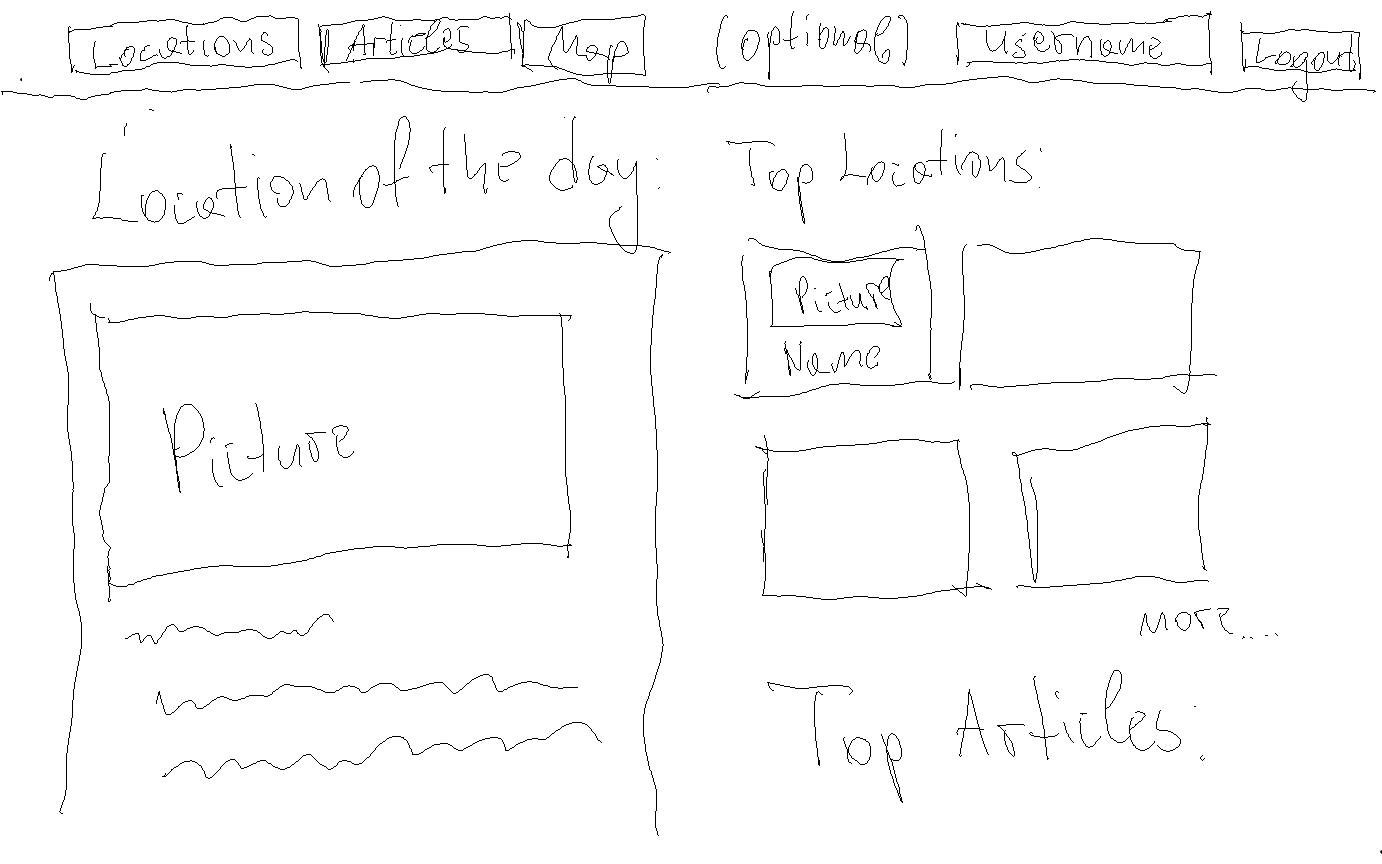 Locations Articles Map (optional) Username Logout
Location of the day:
Top Locations:
Picture
Name
Picture
more....
Top Articles: